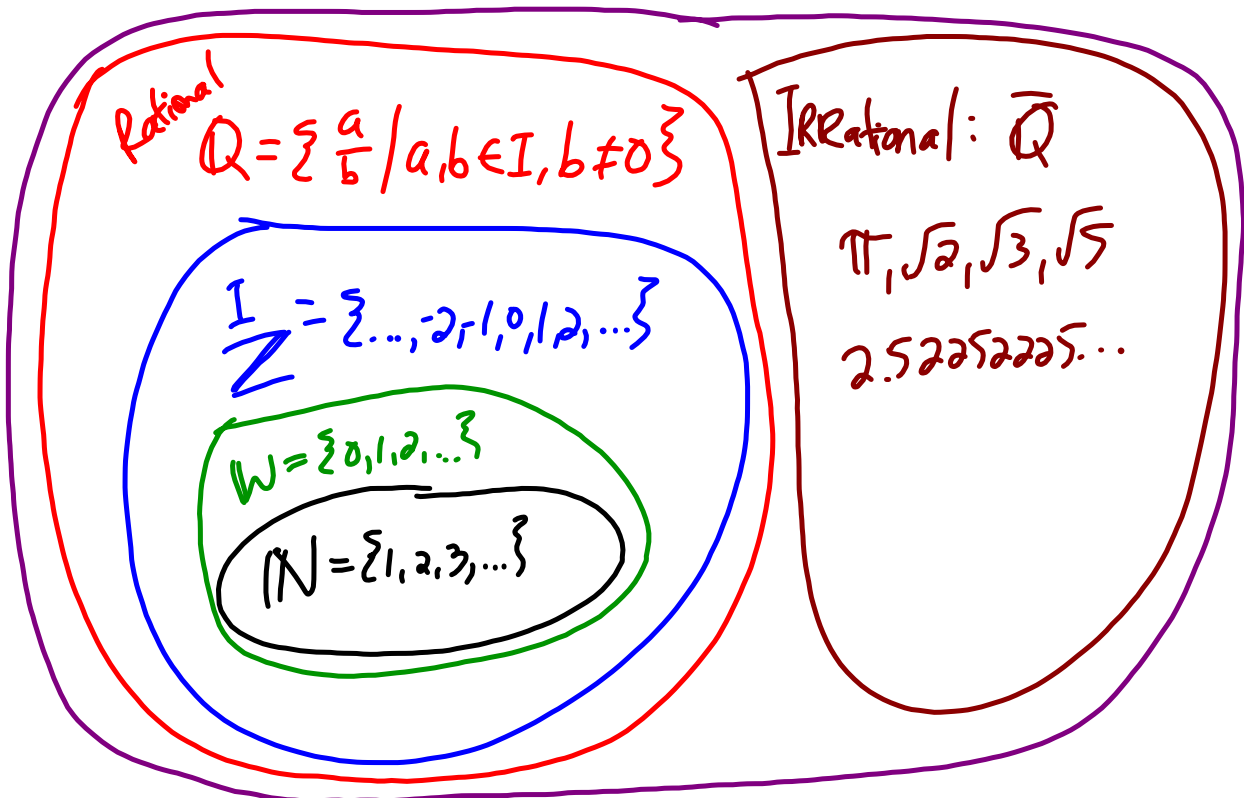 Rational
Q = { a/b / a, b ∈ I, b ≠ 0 }
I
Z = { ..., -2, -1, 0, 1, 2, ... }
W = { 0, 1, 2, ... }
N = { 1, 2, 3, ... }
IRRational : Q̅
π, √2, √3, √5
2.522522225...